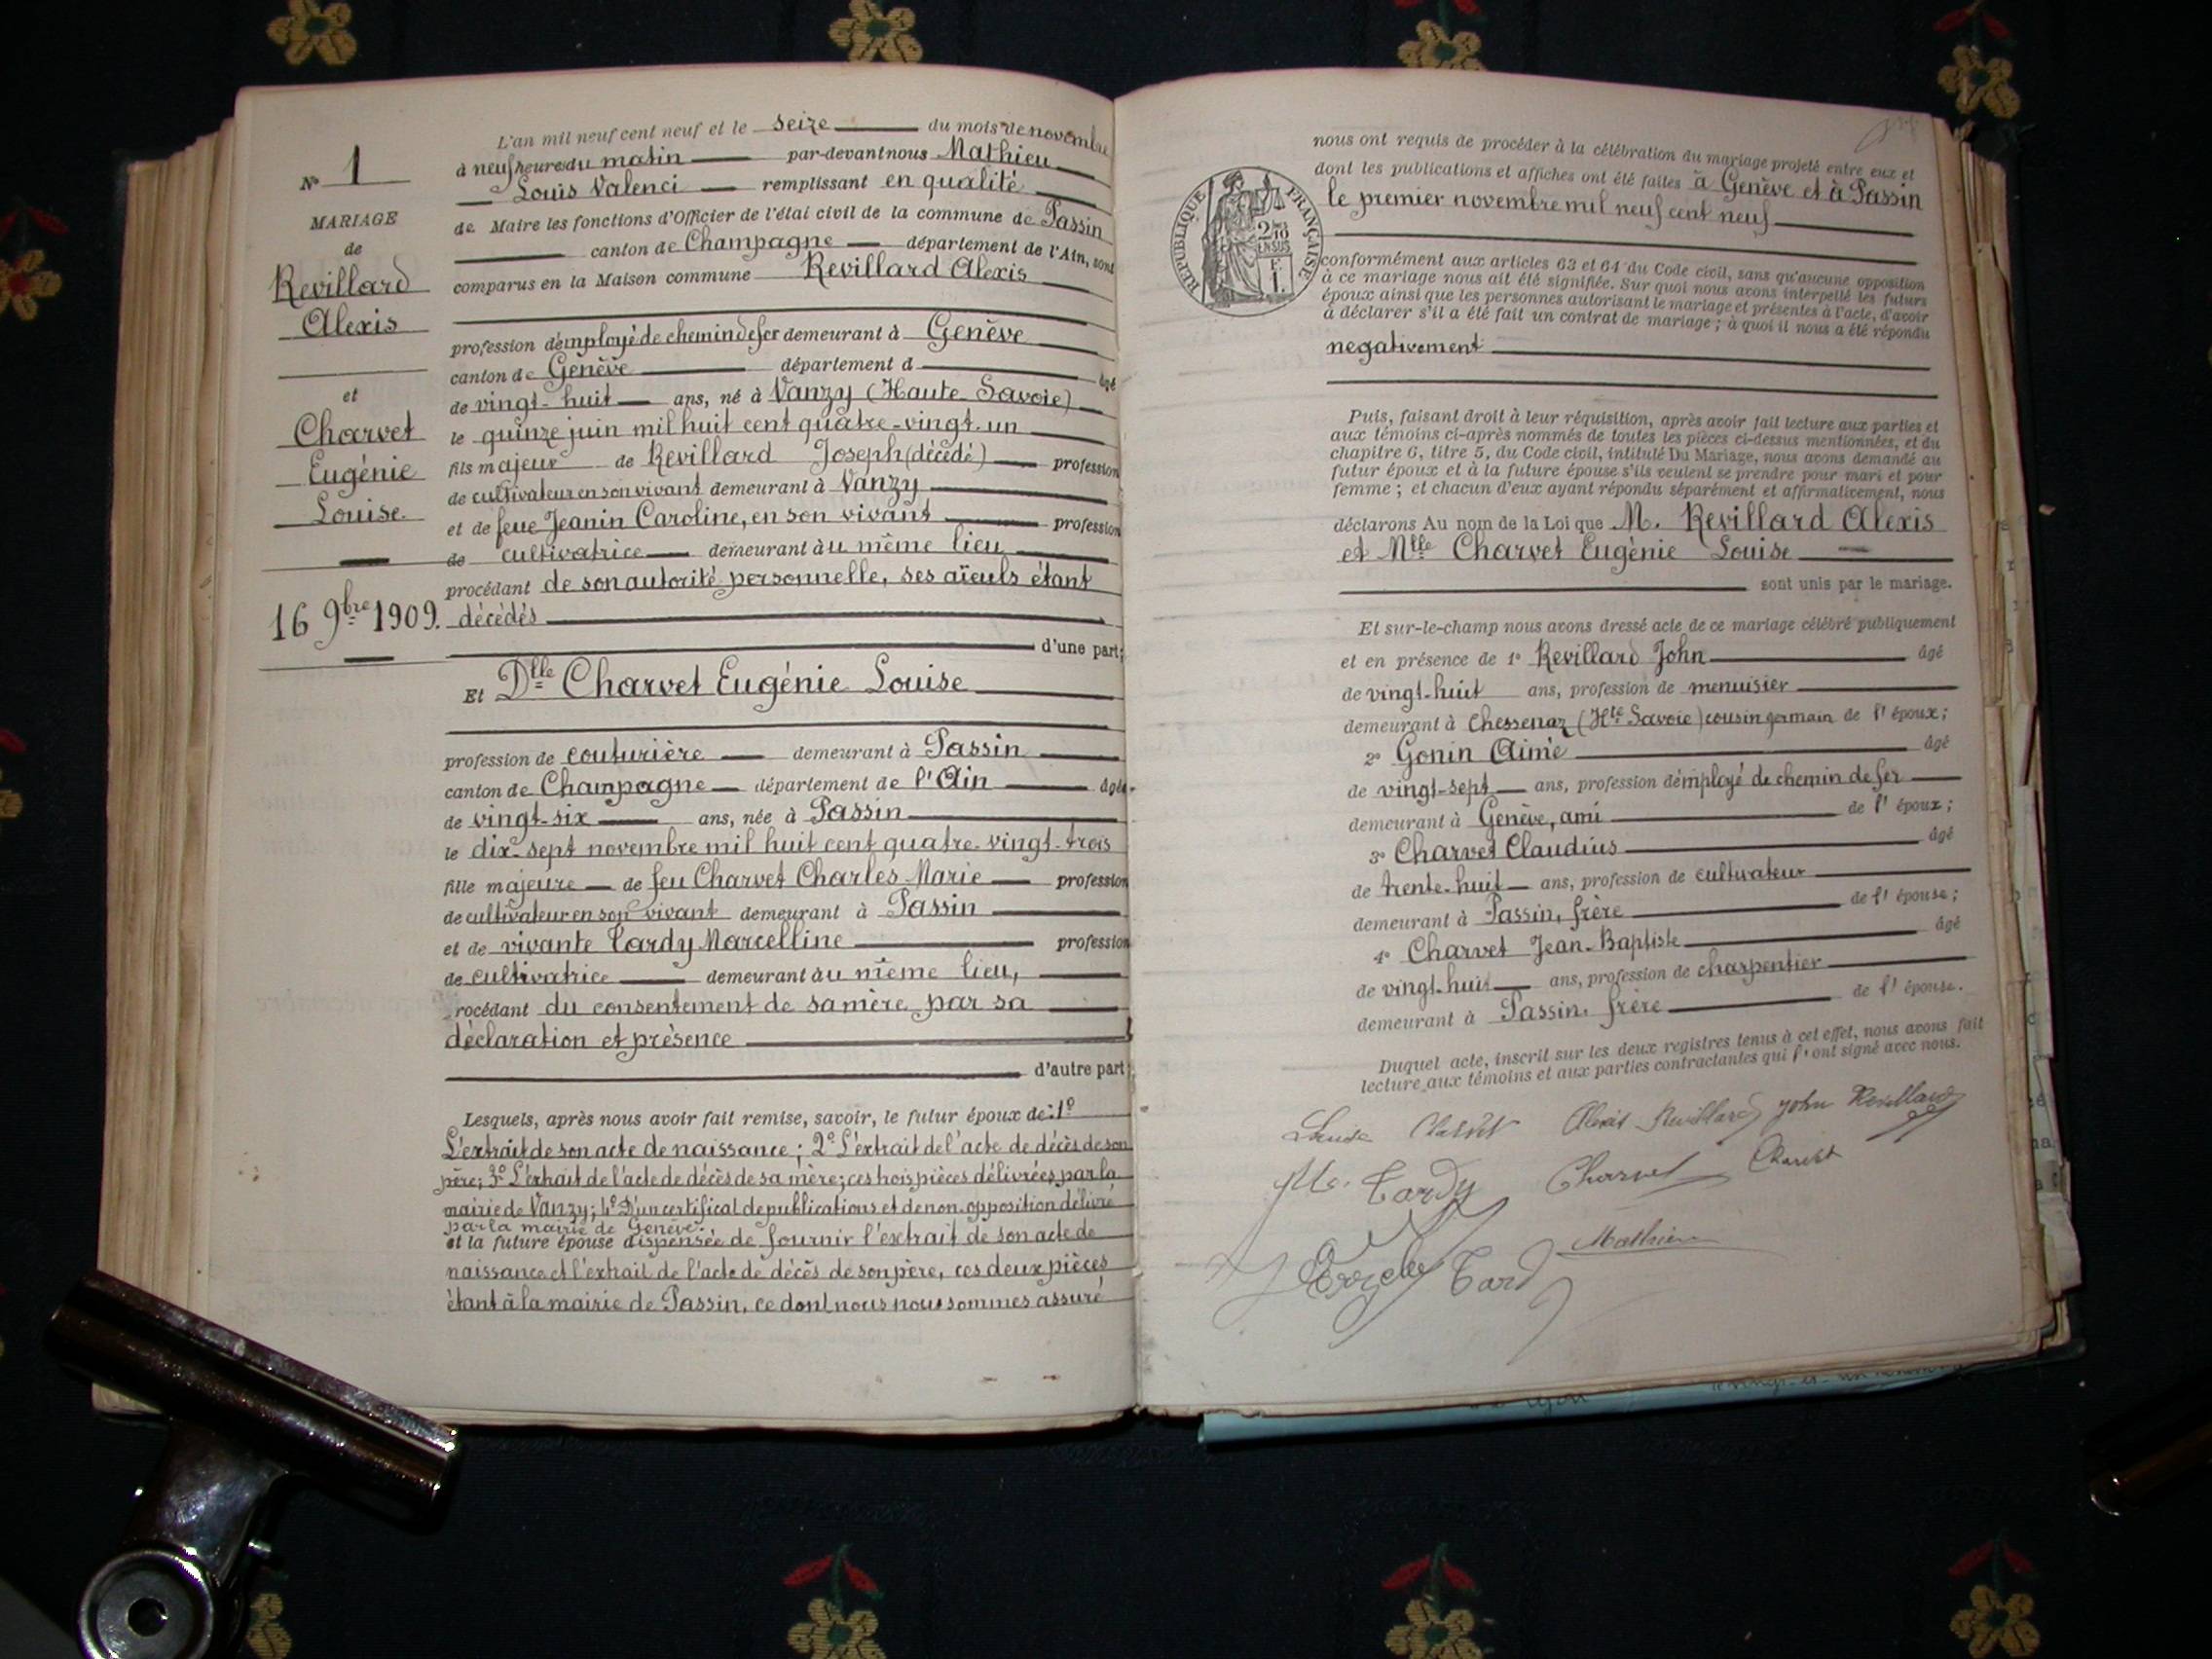 N° 1
MARIAGE
de
Revillard
Alexis
et
Charvet
Eugénie
Louise.
16 9bre 1909.
L'an mil neuf cent neuf et le seize du mois de novembre
à neuf heures du matin par-devant nous Mathieu
Louis Valenci remplissant en qualité
de Maire les fonctions d'Officier de l'état civil de la commune de Passin
canton de Champagne département de l'Ain, sont
comparus en la Maison commune Revillard Alexis
profession d'employé de chemin de fer demeurant à Genève
canton de Genève département d âgé
de vingt-huit ans, né à Vanzy (Haute Savoie)
le quinze juin mil huit cent quatre-vingt-un
fils majeur de Revillard Joseph (décédé) profession
de cultivateur en son vivant demeurant à Vanzy
et de feue Jeanin Caroline, en son vivant profession
de cultivatrice demeurant au même lieu
procédant de son autorité personnelle, ses aïeuls étant
décédés
d'une part;
Et Dlle Charvet Eugénie Louise
profession de couturière demeurant à Passin
canton de Champagne département de l'Ain âgée
de vingt-six ans, née à Passin
le dix-sept novembre mil huit cent quatre-vingt-trois
fille majeure de feu Charvet Charles Marie profession
de cultivateur en son vivant demeurant à Passin
et de vivante Tardy Marcelline profession
de cultivatrice demeurant au même lieu,
rocédant du consentement de sa mère par sa
déclaration et présence
d'autre part;
Lesquels, après nous avoir fait remise, savoir, le futur époux de: 1°
L'extrait de son acte de naissance; 2° L'extrait de l'acte de décès de son
père; 3° L'extrait de l'acte de décès de sa mère; ces trois pièces délivrées par la
mairie de Vanzy; 4° D'un certificat de publications et de non-opposition délivré
par la mairie de Genève;
et la future épouse dispensée de fournir l'extrait de son acte de
naissance et l'extrait de l'acte de décès de son père, ces deux pièces
étant à la mairie de Passin, ce dont nous nous sommes assuré
RÉPUBLIQUE FRANÇAISE
2/10
EN SUS
nous ont requis de procéder à la célébration du mariage projeté entre eux et
dont les publications et affiches ont été faites à Genève et à Passin
le premier novembre mil neuf cent neuf
conformément aux articles 63 et 64 du Code civil, sans qu'aucune opposition
à ce mariage nous ait été signifiée. Sur quoi nous avons interpellé les futurs
époux ainsi que les personnes autorisant le mariage et présentes à l'acte, d'avoir
à déclarer s'il a été fait un contrat de mariage; à quoi il nous a été répondu
negativement
Puis, faisant droit à leur réquisition, après avoir fait lecture aux parties et
aux témoins ci-après nommés de toutes les pièces ci-dessus mentionnées, et du
chapitre 6, titre 5, du Code civil, intitulé Du Mariage, nous avons demandé au
futur époux et à la future épouse s'ils veulent se prendre pour mari et pour
femme; et chacun d'eux ayant répondu séparément et affirmativement, nous
déclarons Au nom de la Loi que M. Revillard Alexis
et Mlle Charvet Eugénie Louise
sont unis par le mariage.
Et sur-le-champ nous avons dressé acte de ce mariage célébré publiquement
et en présence de 1° Revillard John âgé
de vingt-huit ans, profession de menuisier
demeurant à Chessenaz (Hte Savoie) cousin germain de l'époux;
2° Gonin Aimé âgé
de vingt-sept ans, profession d'employé de chemin de fer
demeurant à Genève, ami de l'époux;
3° Charvet Claudius âgé
de trente-huit ans, profession de cultivateur
demeurant à Passin, frère de l'épouse;
4° Charvet Jean-Baptiste âgé
de vingt-huit ans, profession de charpentier
demeurant à Passin, frère de l'épouse.
Duquel acte, inscrit sur les deux registres tenus à cet effet, nous avons fait
lecture aux témoins et aux parties contractantes qui l'ont signé avec nous.
Louise Charvet Alexis Revillard John Revillard
Tardy Charvet Charvet
Mathieu
Tardy